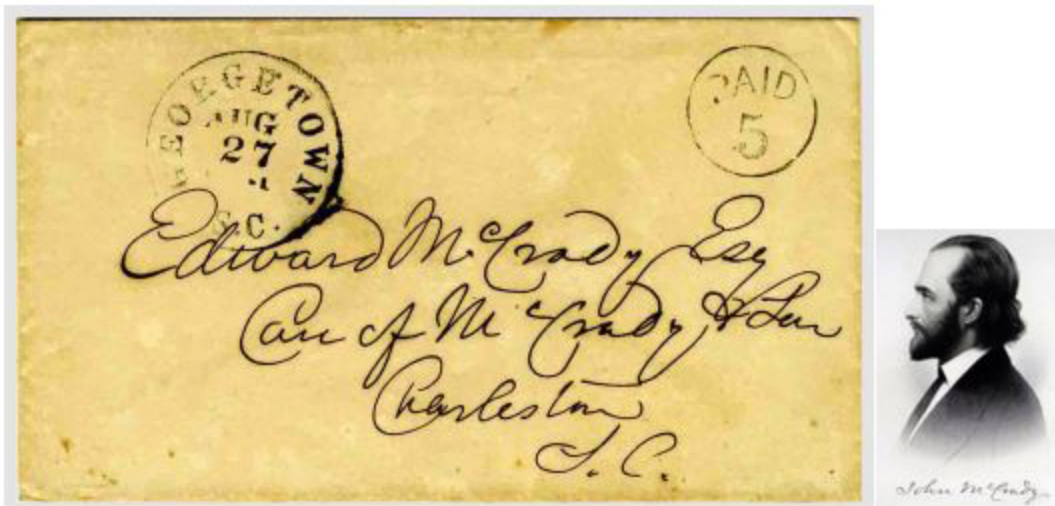 GEORGETOWN
AUG
27
S.C.
PAID
5
Edward McCrady Esq
Care of McCrady & Son
Charleston
S. C.
John McCrady